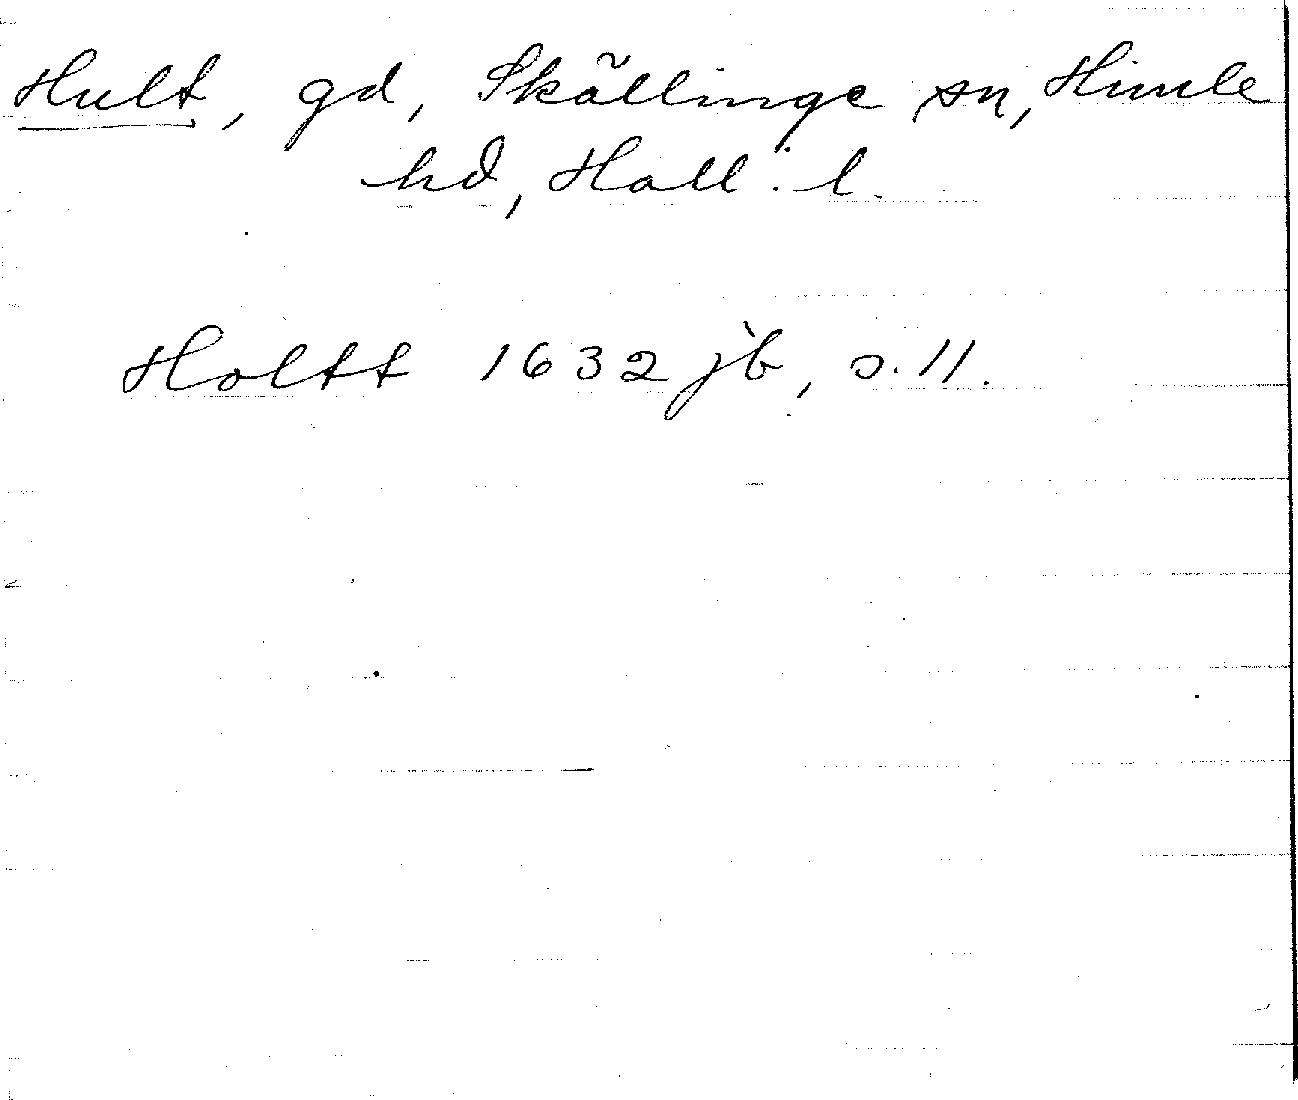 Hult, gd, Skällinge sn, Himle
hd, Hall. l.
Holtt 1632 jb, s. 11.